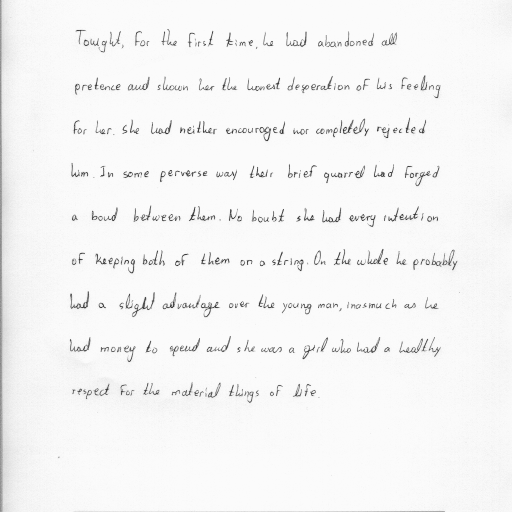 Tonight, for the first time, he had abandoned all
pretence and shown her the honest desperation of his feeling
for her. She had neither encouraged nor completely rejected
him. In some perverse way their brief quarrel had forged
a bond between them. No doubt she had every intention
of keeping both of them on a string. On the whole he probably
had a slight advantage over the young man, inasmuch as he
had money to spend and she was a girl who had a healthy
respect for the material things of life.